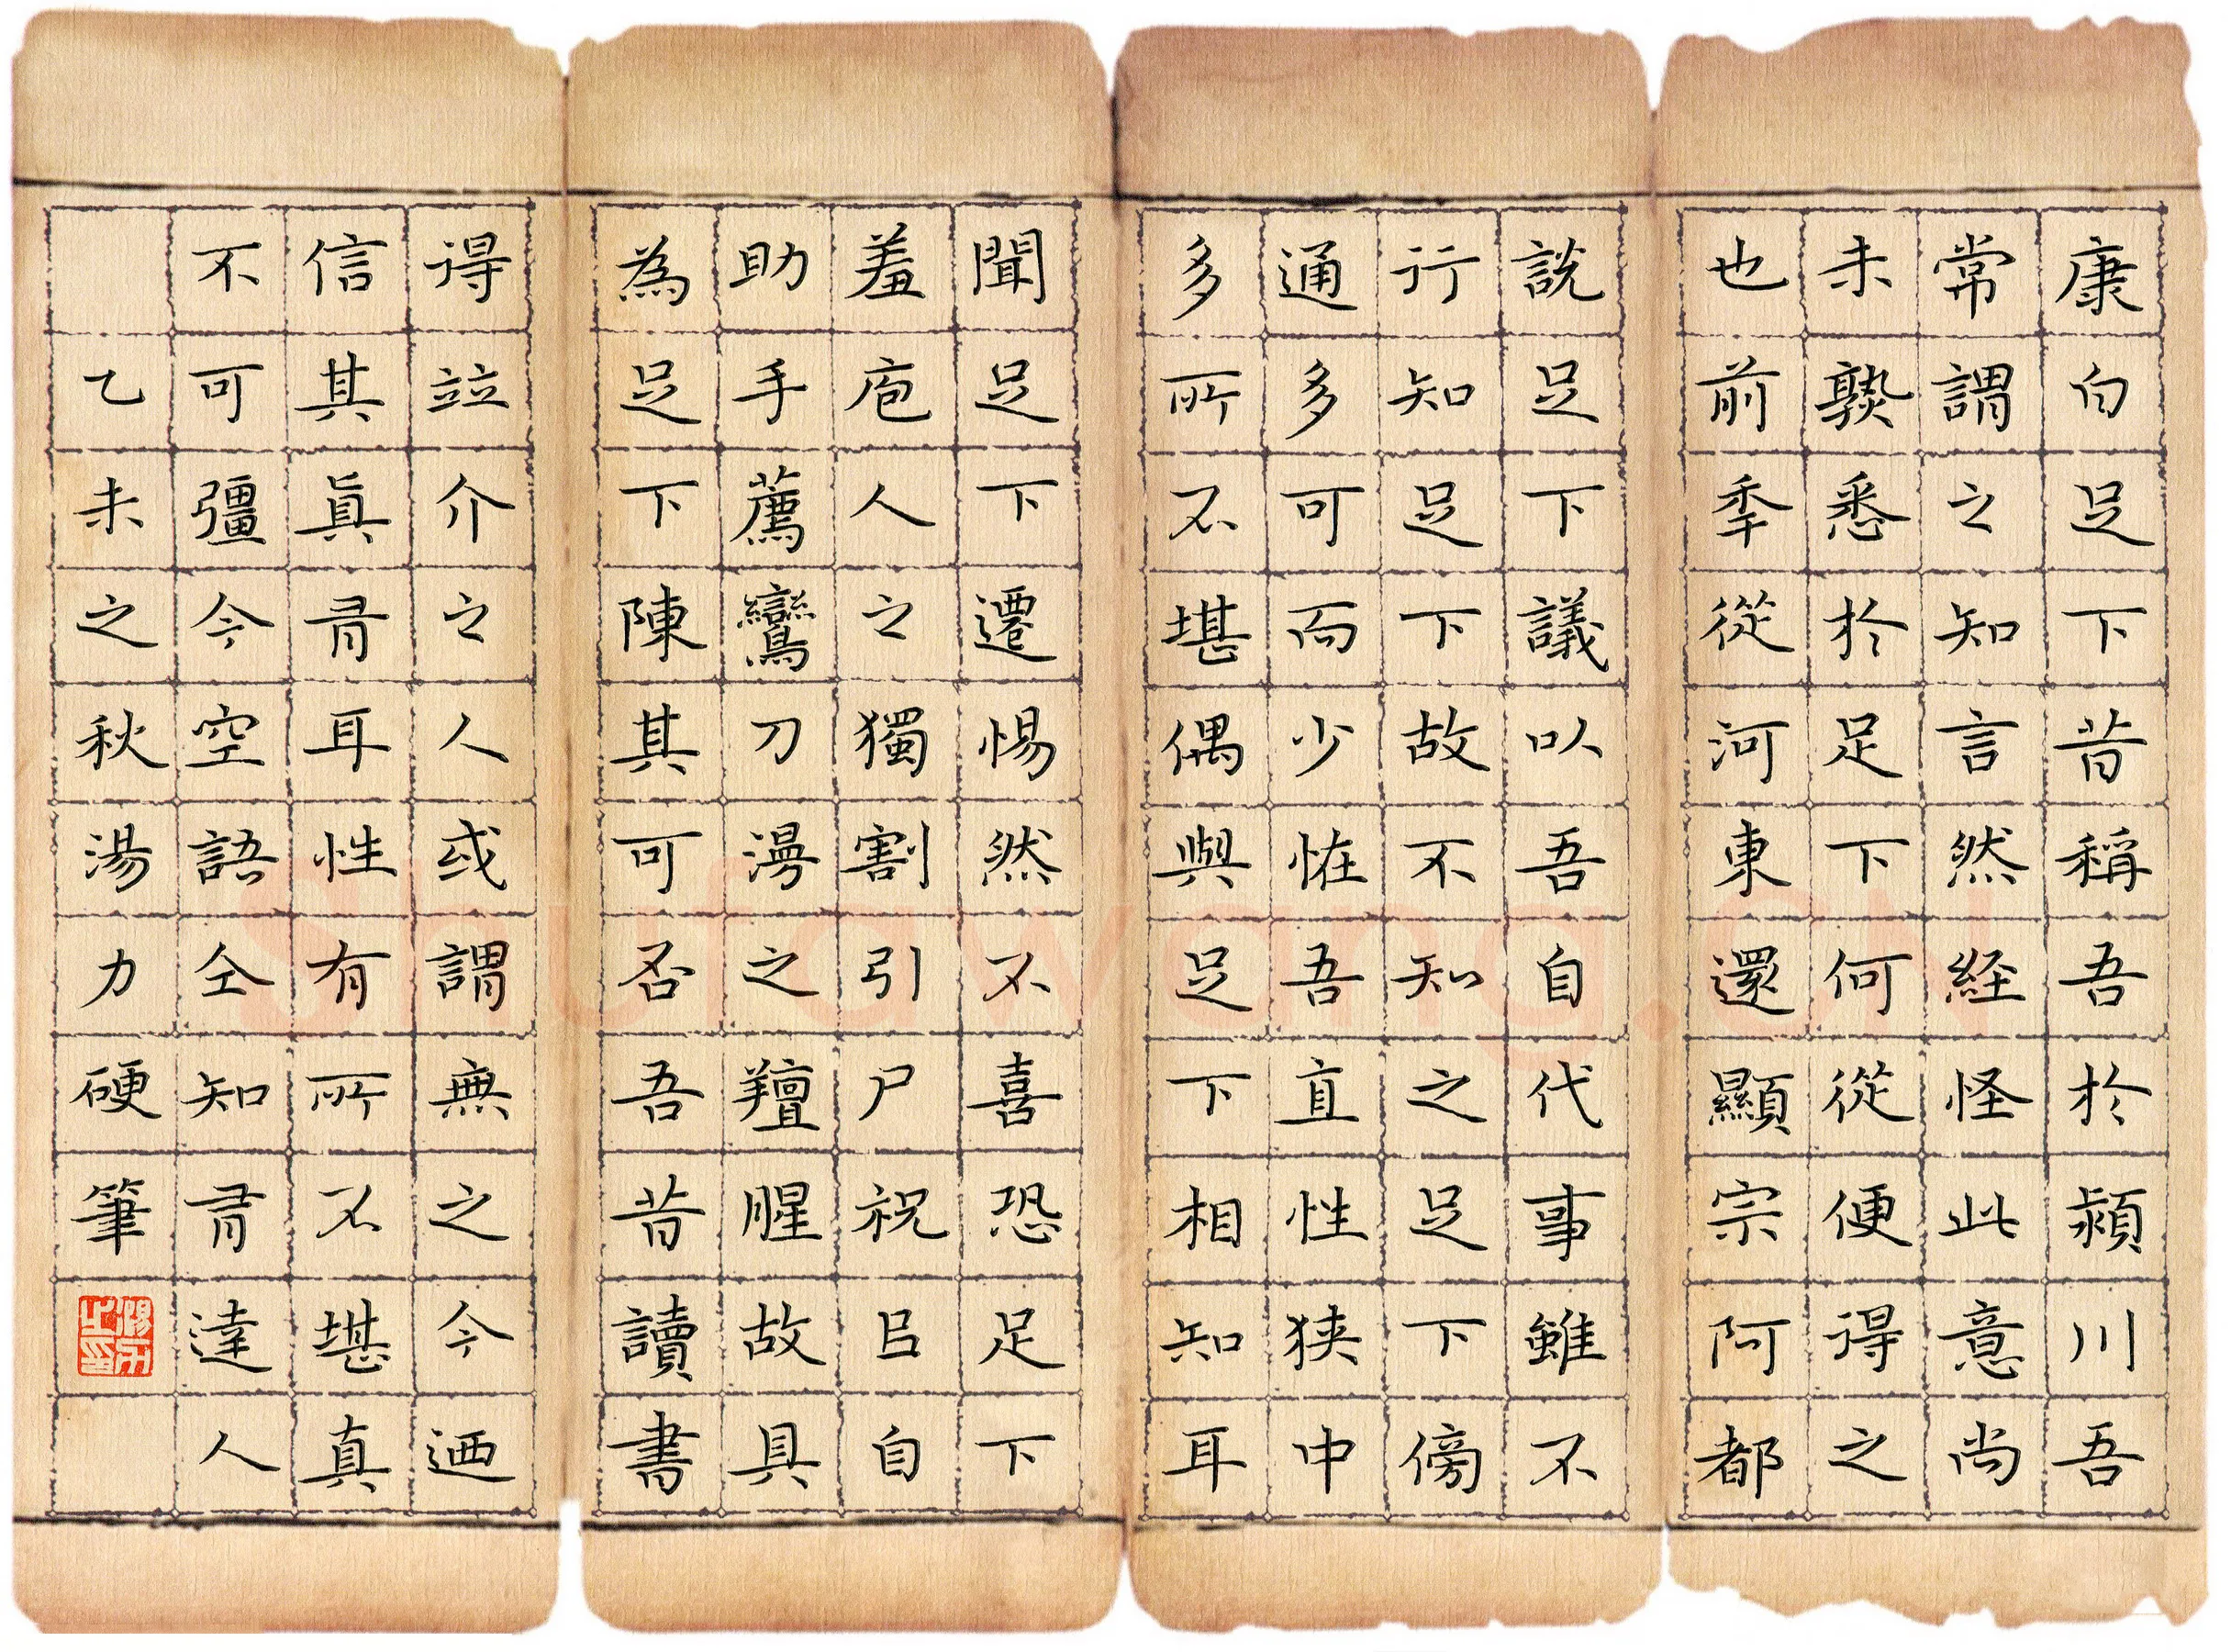 康白足下昔稱吾於潁川吾
常謂之知言然経怪此意尚
未熟悉於足下何從便得之
也前秊從河東還顯宗阿都
說足下議以吾自代事雖不
行知足下故不知之足下傍
通多可而少恠吾直性狭中
多所不堪偶與足下相知耳
聞足下遷惕然不喜恐足下
羞庖人之獨割引尸祝㠯自
助手薦鸞刀漫之羶腥故具
為足下陳其可否吾昔讀書
得竝介之人或謂無之今迺
信其眞有耳性有所不堪真
不可彊今空語仝知有達人
乙未之秋湯力硬筆
Shufawang.CN